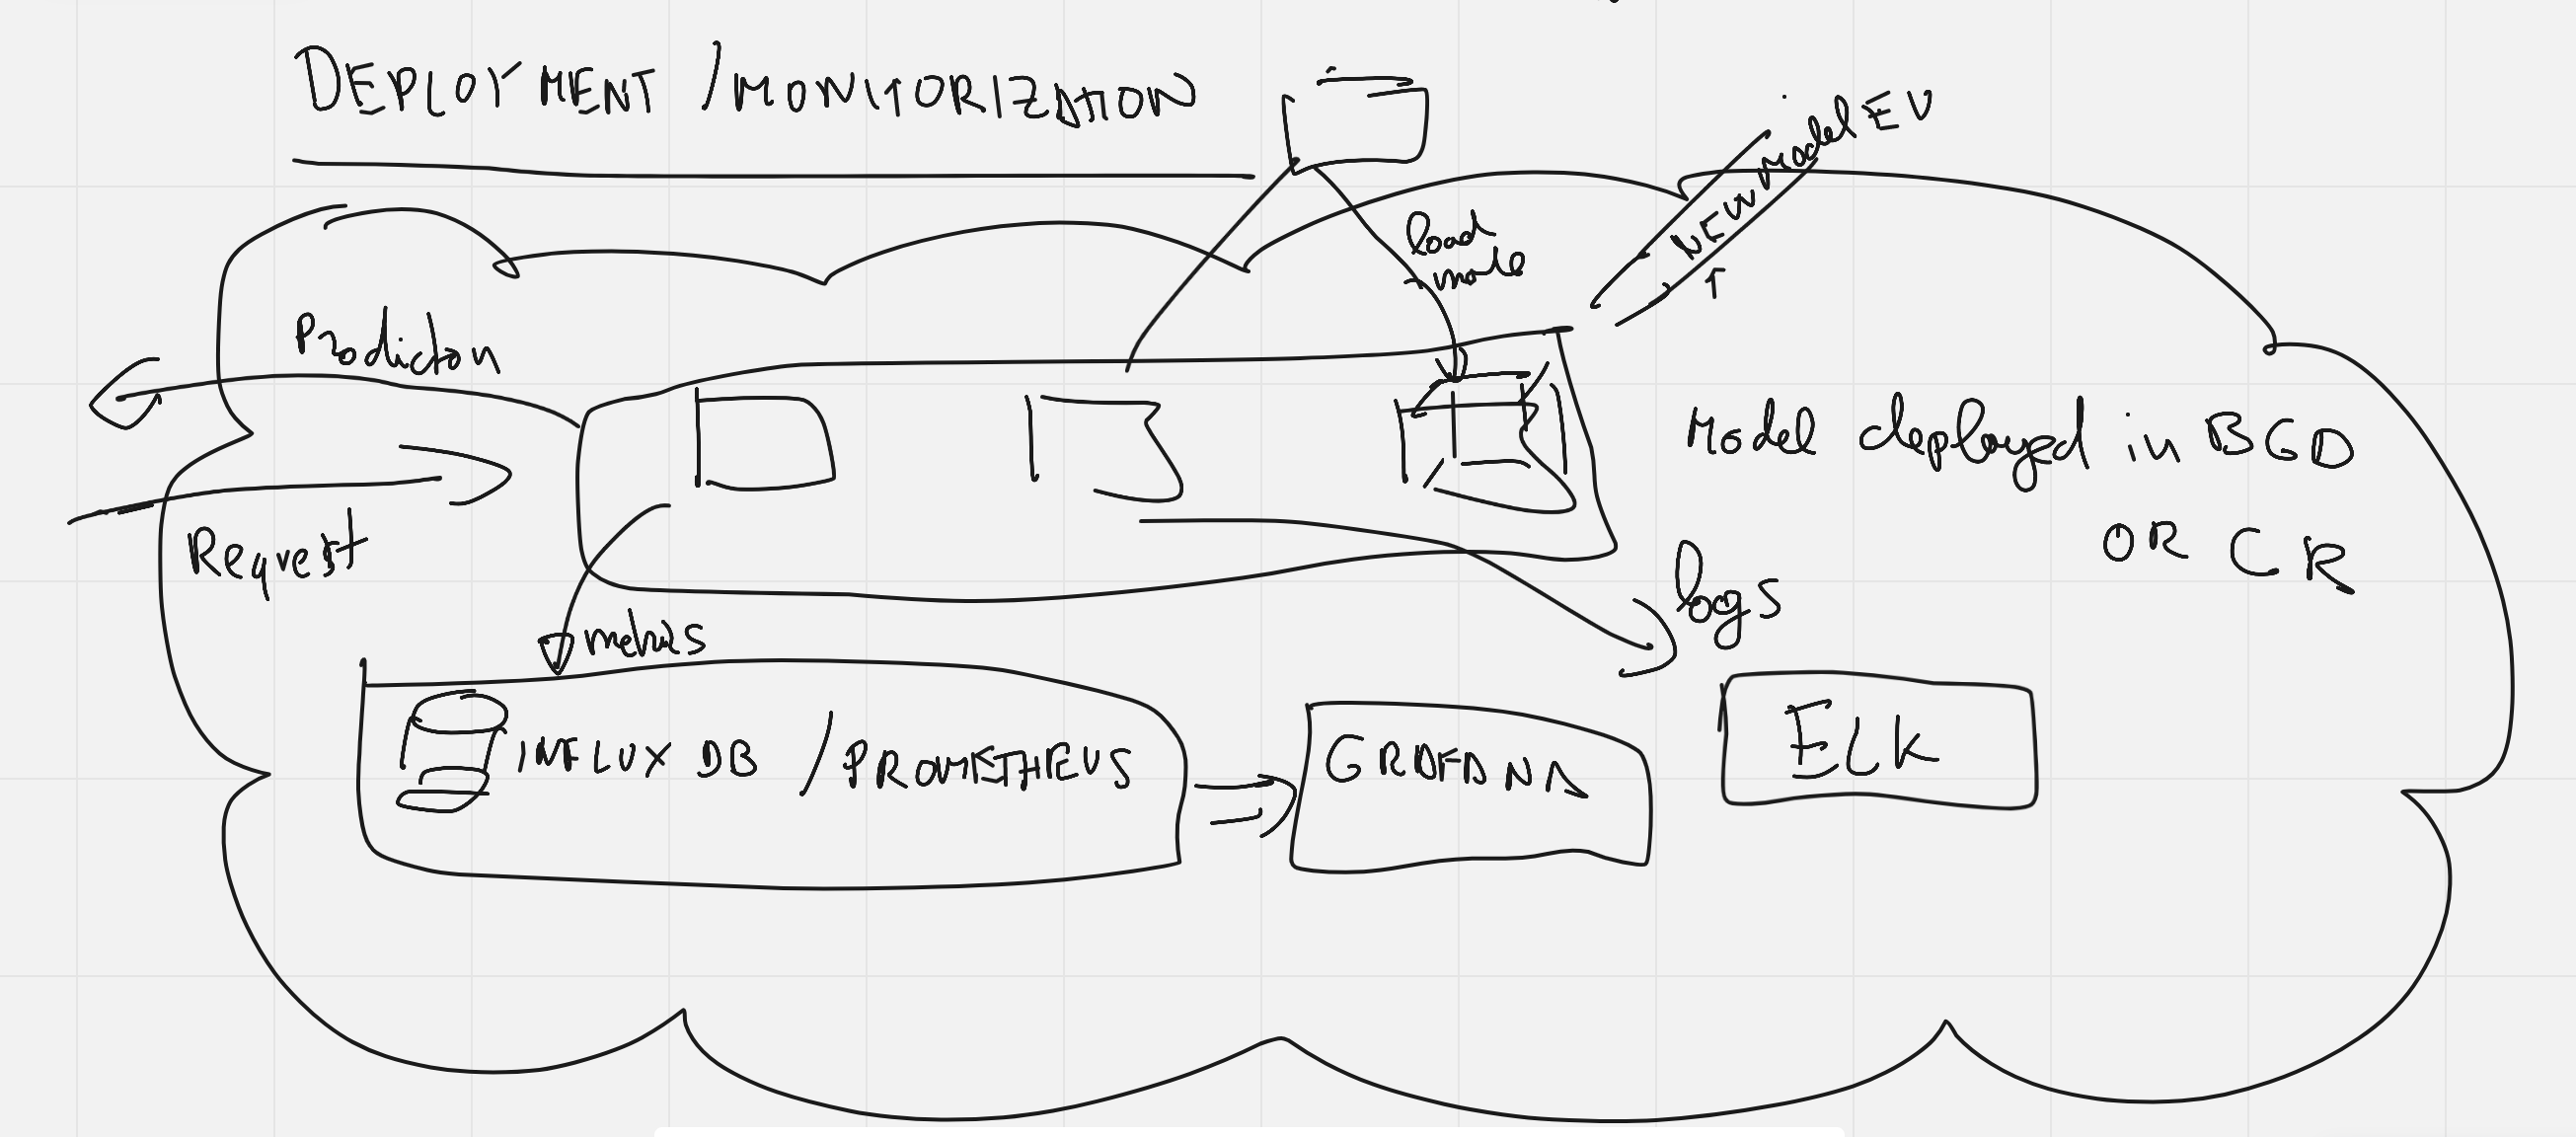 DEPLOYMENT / MONITORIZATION
NEW Model EV
load
mode
Prediction
Request
Model deployed in BGD
OR CR
logs
metrics
INFLUX DB / PROMETHEUS
GRAFANA
ELK